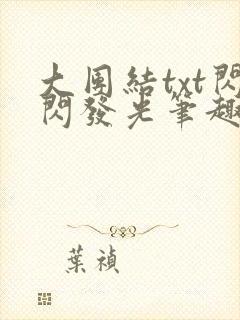 大團結txt閃
閃發光筆趣
葉禎